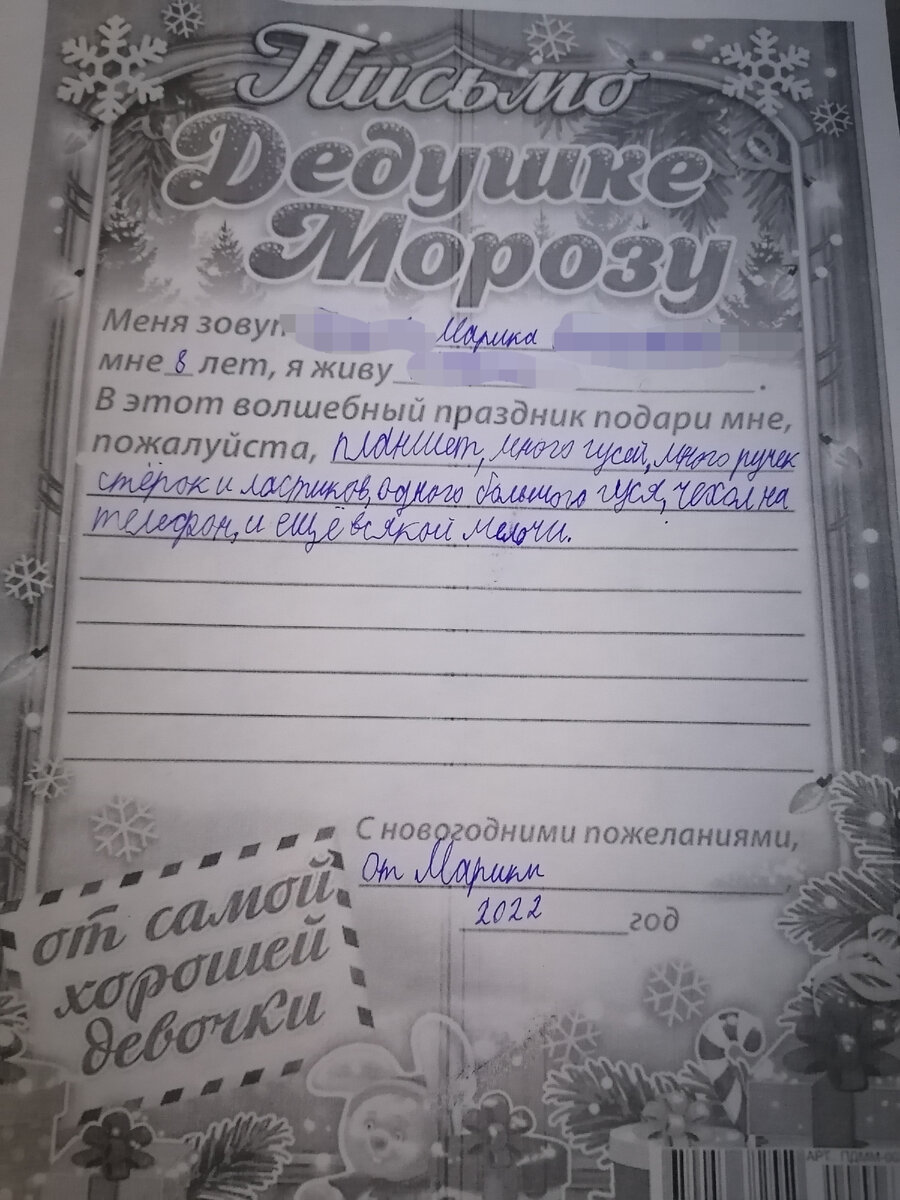 Письмо
Дедушке
Морозу
Меня зовут Марика
мне 8 лет, я живу .
В этот волшебный праздник подари мне,
пожалуйста, планшет, много гусей, много ручек
стёрок и ластиков, одного большого гуся, чехол на
телефон, и ещё всякой мелочи.
С новогодними пожеланиями,
от Марики ,
2022 год
от самой
хорошей
девочки